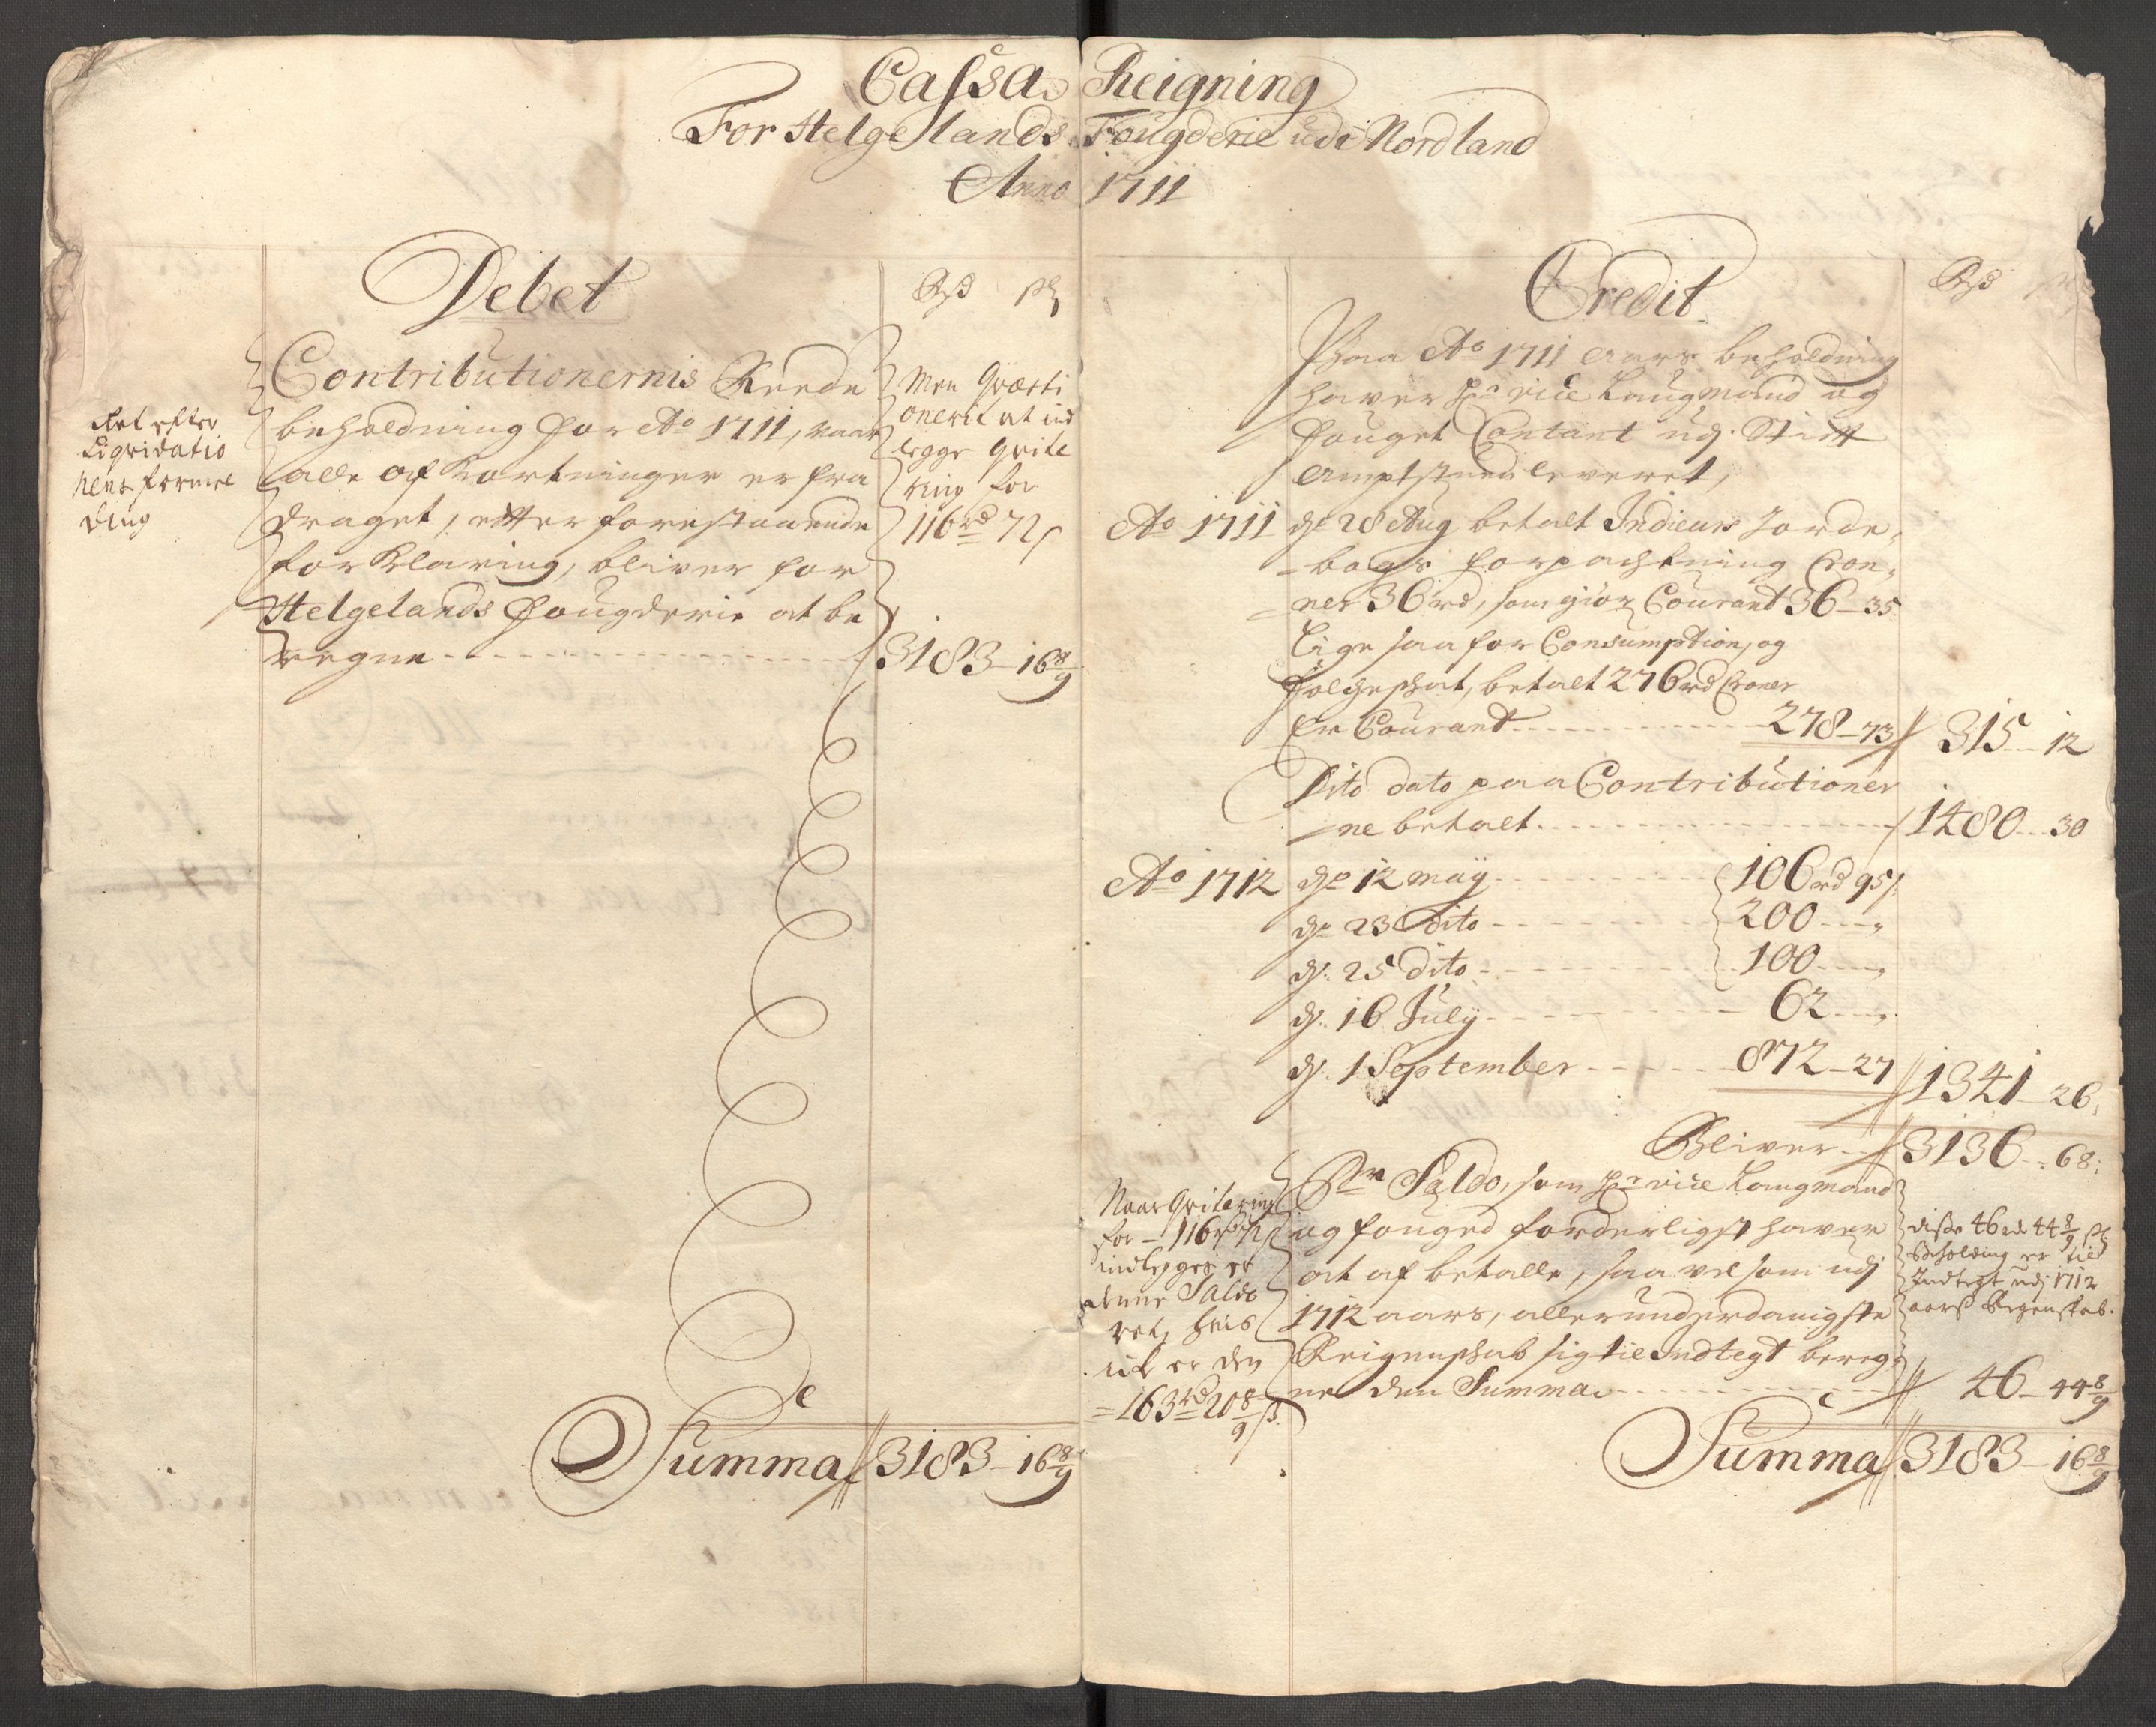 Cassa Reigning
For Helgelands Fougderie udi Nordland
Anno 1711
Debet
Rd ß
Contributionernis Reede
beholdning for Ao 1711, naar
alle af Kortninger er fra
draget, efter forestaaende
forklaring, bliver for
Helgelands fougderie at be
regne 3183 - 16 8/9
Ret efter
Liqvidatio
nens formel
ding
Men Qvæsti
oneret at ind
legge qvite
ring for
116 rd 72 ß
Summa 3183 - 16 8/9
Credit
Rd
Paa Ao 1711 aars beholdning
haver Hr vice Laugmand og
fouget Contant udj Stift
Amptstuen leveret,
Ao 1711 dn 28 Aug betalt Jordе
-bogs forpachtning Cron-
ner 36 rd, som giør Courant 36 - 35
Lige saa for Consumption, og
folcheskat, betalt 276 rd Croner
Er Courant 278 - 73 315 - 12
Dito dato paa Contributioner
-ne betalt 1480 - 30
Ao 1712 dn 12 may 106 rd 95 ß
dn 23 dito 200 - "
dn 25 dito 100 - "
dn 16 July 62 - "
dn 1 September 872 - 27 1341 - 26
Bliver 3136 - 68
Pr Saldo, som Hr vice Laugmand
og fouged forderligst haver
at af betalle, saa vel som udj
1712 aars, allerunderdanigste
Reigenskab sig til Indtegt bereg-
ne den Summa 46 - 44 8/9
Naar Qvitering
for - 116 rd 72 ß
indlegges er
denne Saldo
ret, hvis
ik er den
= 163 rd 20 8/9 ß
disse 46 rd 44 8/9 ß
Beholding er til
Indtegt udj 1712
aars Regenskab.
Summa 3183 - 16 8/9